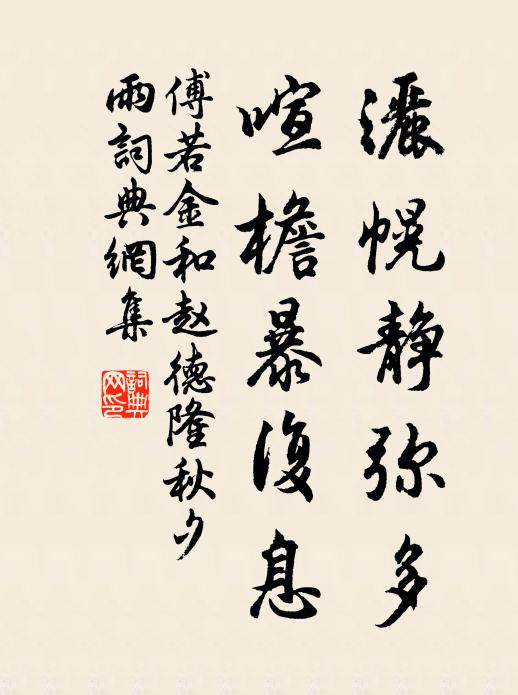 灑幌静弥多
喧檐暴復息
傅若金和赵德隆秋夕
雨詞典網集
詞典網印